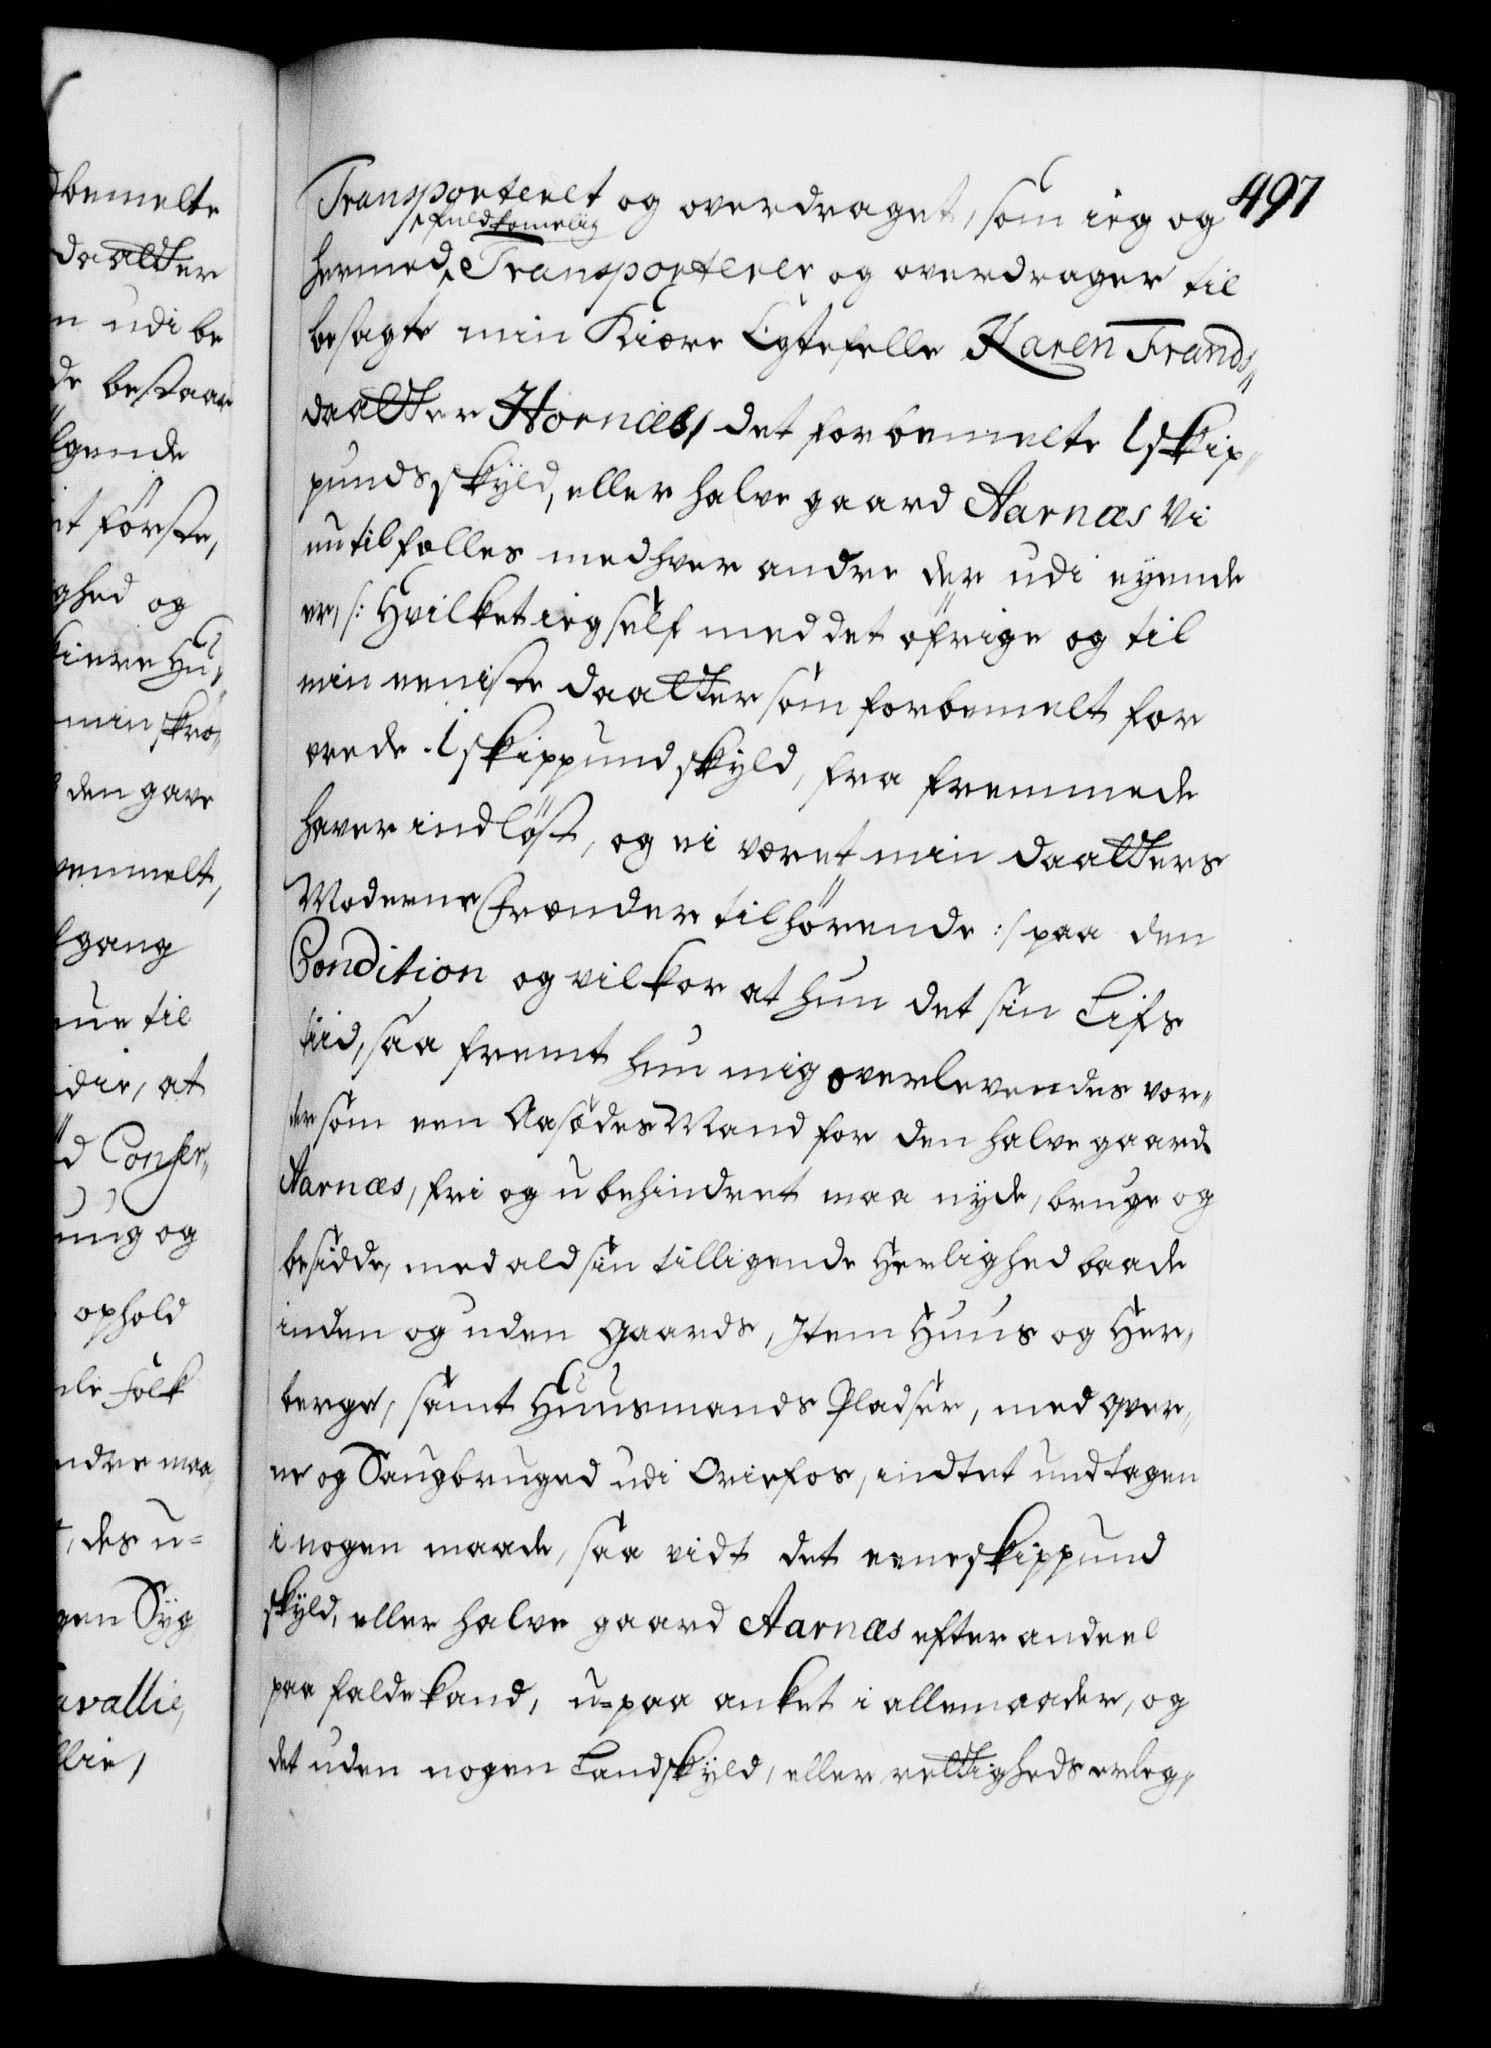 dbemelte
daatter
n udi be
de bestaar
lgende
et første,
ghed og
kiere Hu„
min skrø„
den gave
rmelt,
lgang
nne til
die, at
d Confir„
ning og
ophold
nle Folk
ndre maa,
, des u=
gen Syg
avallie,
llie,
497
Transporteert og overdraget, som ieg og
fuldkomelig
hermed Transporterer og overdrager til
besagte min Kiære Egtefelle Karen Frands„
daatter Hornæs, det forbemelte 1 skip„
punds skyld, eller halve gaard Aarnæs vi
nu tilfælles med hver andre der udi eyende
er, /: Hvilket ieg self med det øfrige og til
min eeniste daatter som forbemelt for
ærede 1 skippund skyld, fra fremmede
haver indløst, og ei været min daatters
Moderne Frænder tilhørende :/ paa den
Condition og vilkor at hun det sin Lifs
tiid, saa fremt hun mig overlevendes vor„
der som een Aasædes Mand for den halve gaard
Aarnæs, fri og ubehindret maa nyde, bruge og
besidde, med ald sin tilligende Herlighed baade
inden og uden Gaards, Item Huus og Her„
berge, samt Huusmands Pladser, med qver„
ne og Saugbruged udi Oriefos, indtet undtagen
i nogen maade, saa vidt det eene skippund
skyld, eller halve gaard Aarnæs efter andeel
paa falde kand, u=paa anket i allemaader, og
det uden nogen Landskyld, eller rettigheds erleg„